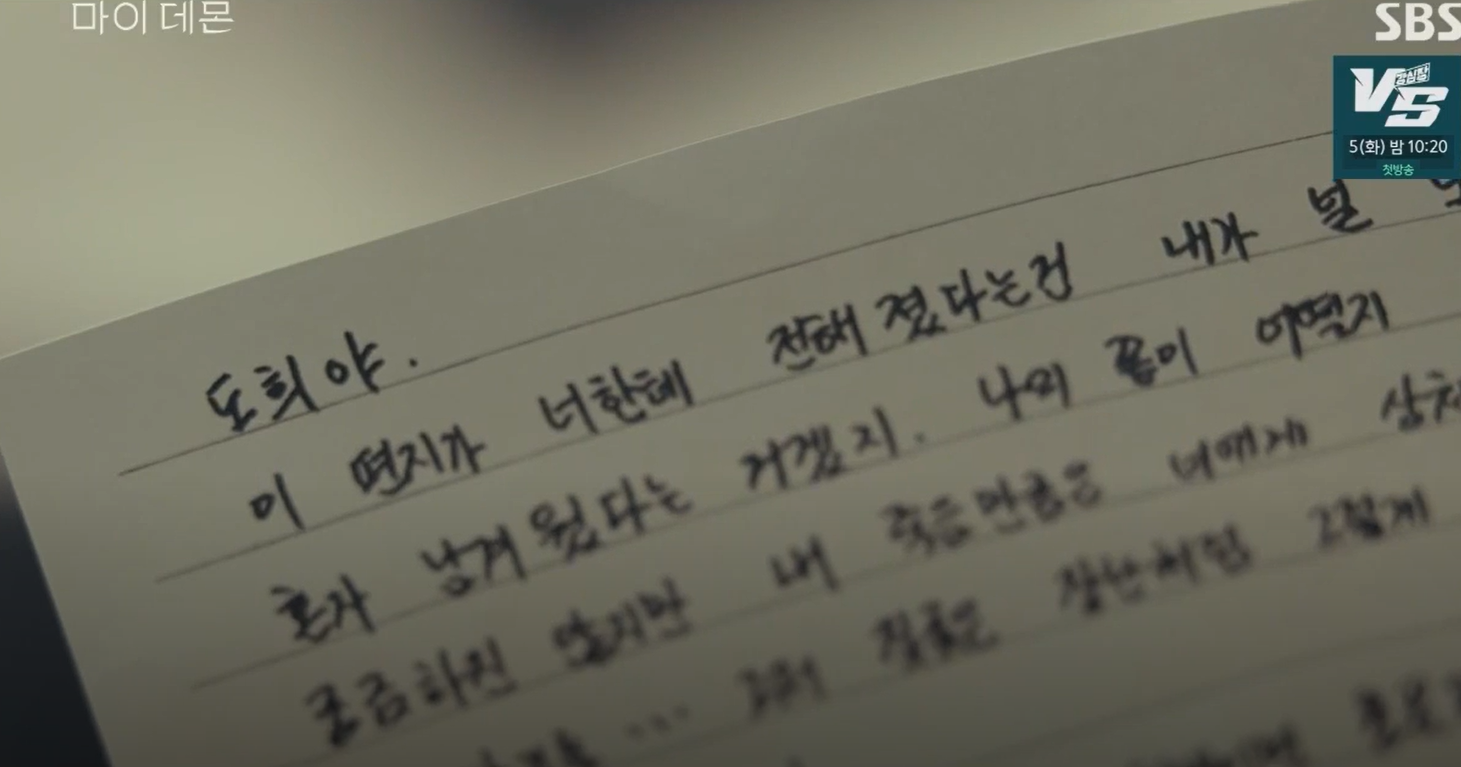 마이 데몬
SBS
강심장
VS
5(화) 밤 10:20
첫방송
도희야.
이 편지가 너한테 전해 졌다는건 내가 널
혼자 남겨 뒀다는 거겠지. 나의 끝이 어떨지
궁금하진 않지만 내 죽음만큼은 너에게
그저 짖궂은 장난처럼 그렇게